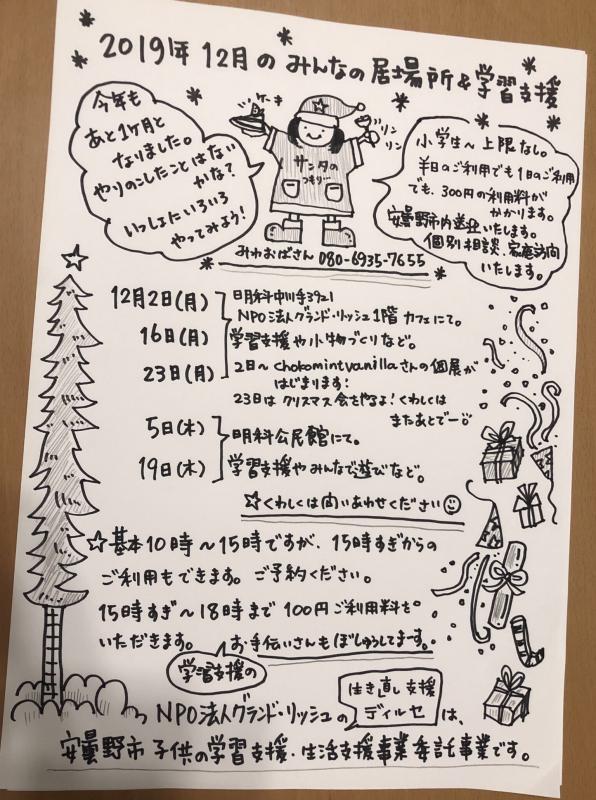 2019年12月のみんなの居場所&学習支援
今年も
あと1ヶ月と
なりました。
やりのこしたことはない
かな?
いっしょにいろいろ
やってみよう!
ケーキ
リン
リン
サンタの
つもり…
小学生〜上限なし。
半日のご利用でも1日のご利用
でも、300円の利用料が
かかります。
安曇野市内送迎いたします。
個別相談、家庭訪問
いたします。
みわおばさん 080-6935-7655
12月2日(月)
16日(月)
23日(月)
明科中川手3921
NPO法人グランド・リッシュ1階カフェにて。
学習支援や小物づくりなど。
2日〜chokomintvanillaさんの個展が
はじまります!
23日はクリスマス会をやるよ!くわしくは
またあとでー
5日(木)
19日(木)
明科公民館にて。
学習支援やみんなで遊びなど。
☆くわしくは問いあわせください
☆基本10時〜15時ですが、15時すぎからの
ご利用もできます。ご予約ください。
15時すぎ〜18時まで100円ご利用料を
いただきます。
お手伝いさんもぼしゅうしてまーす。
学習支援の
NPO法人グランド・リッシュの
生き直し支援
ディルセ
は、
安曇野市 子供の学習支援・生活支援事業委託事業です。